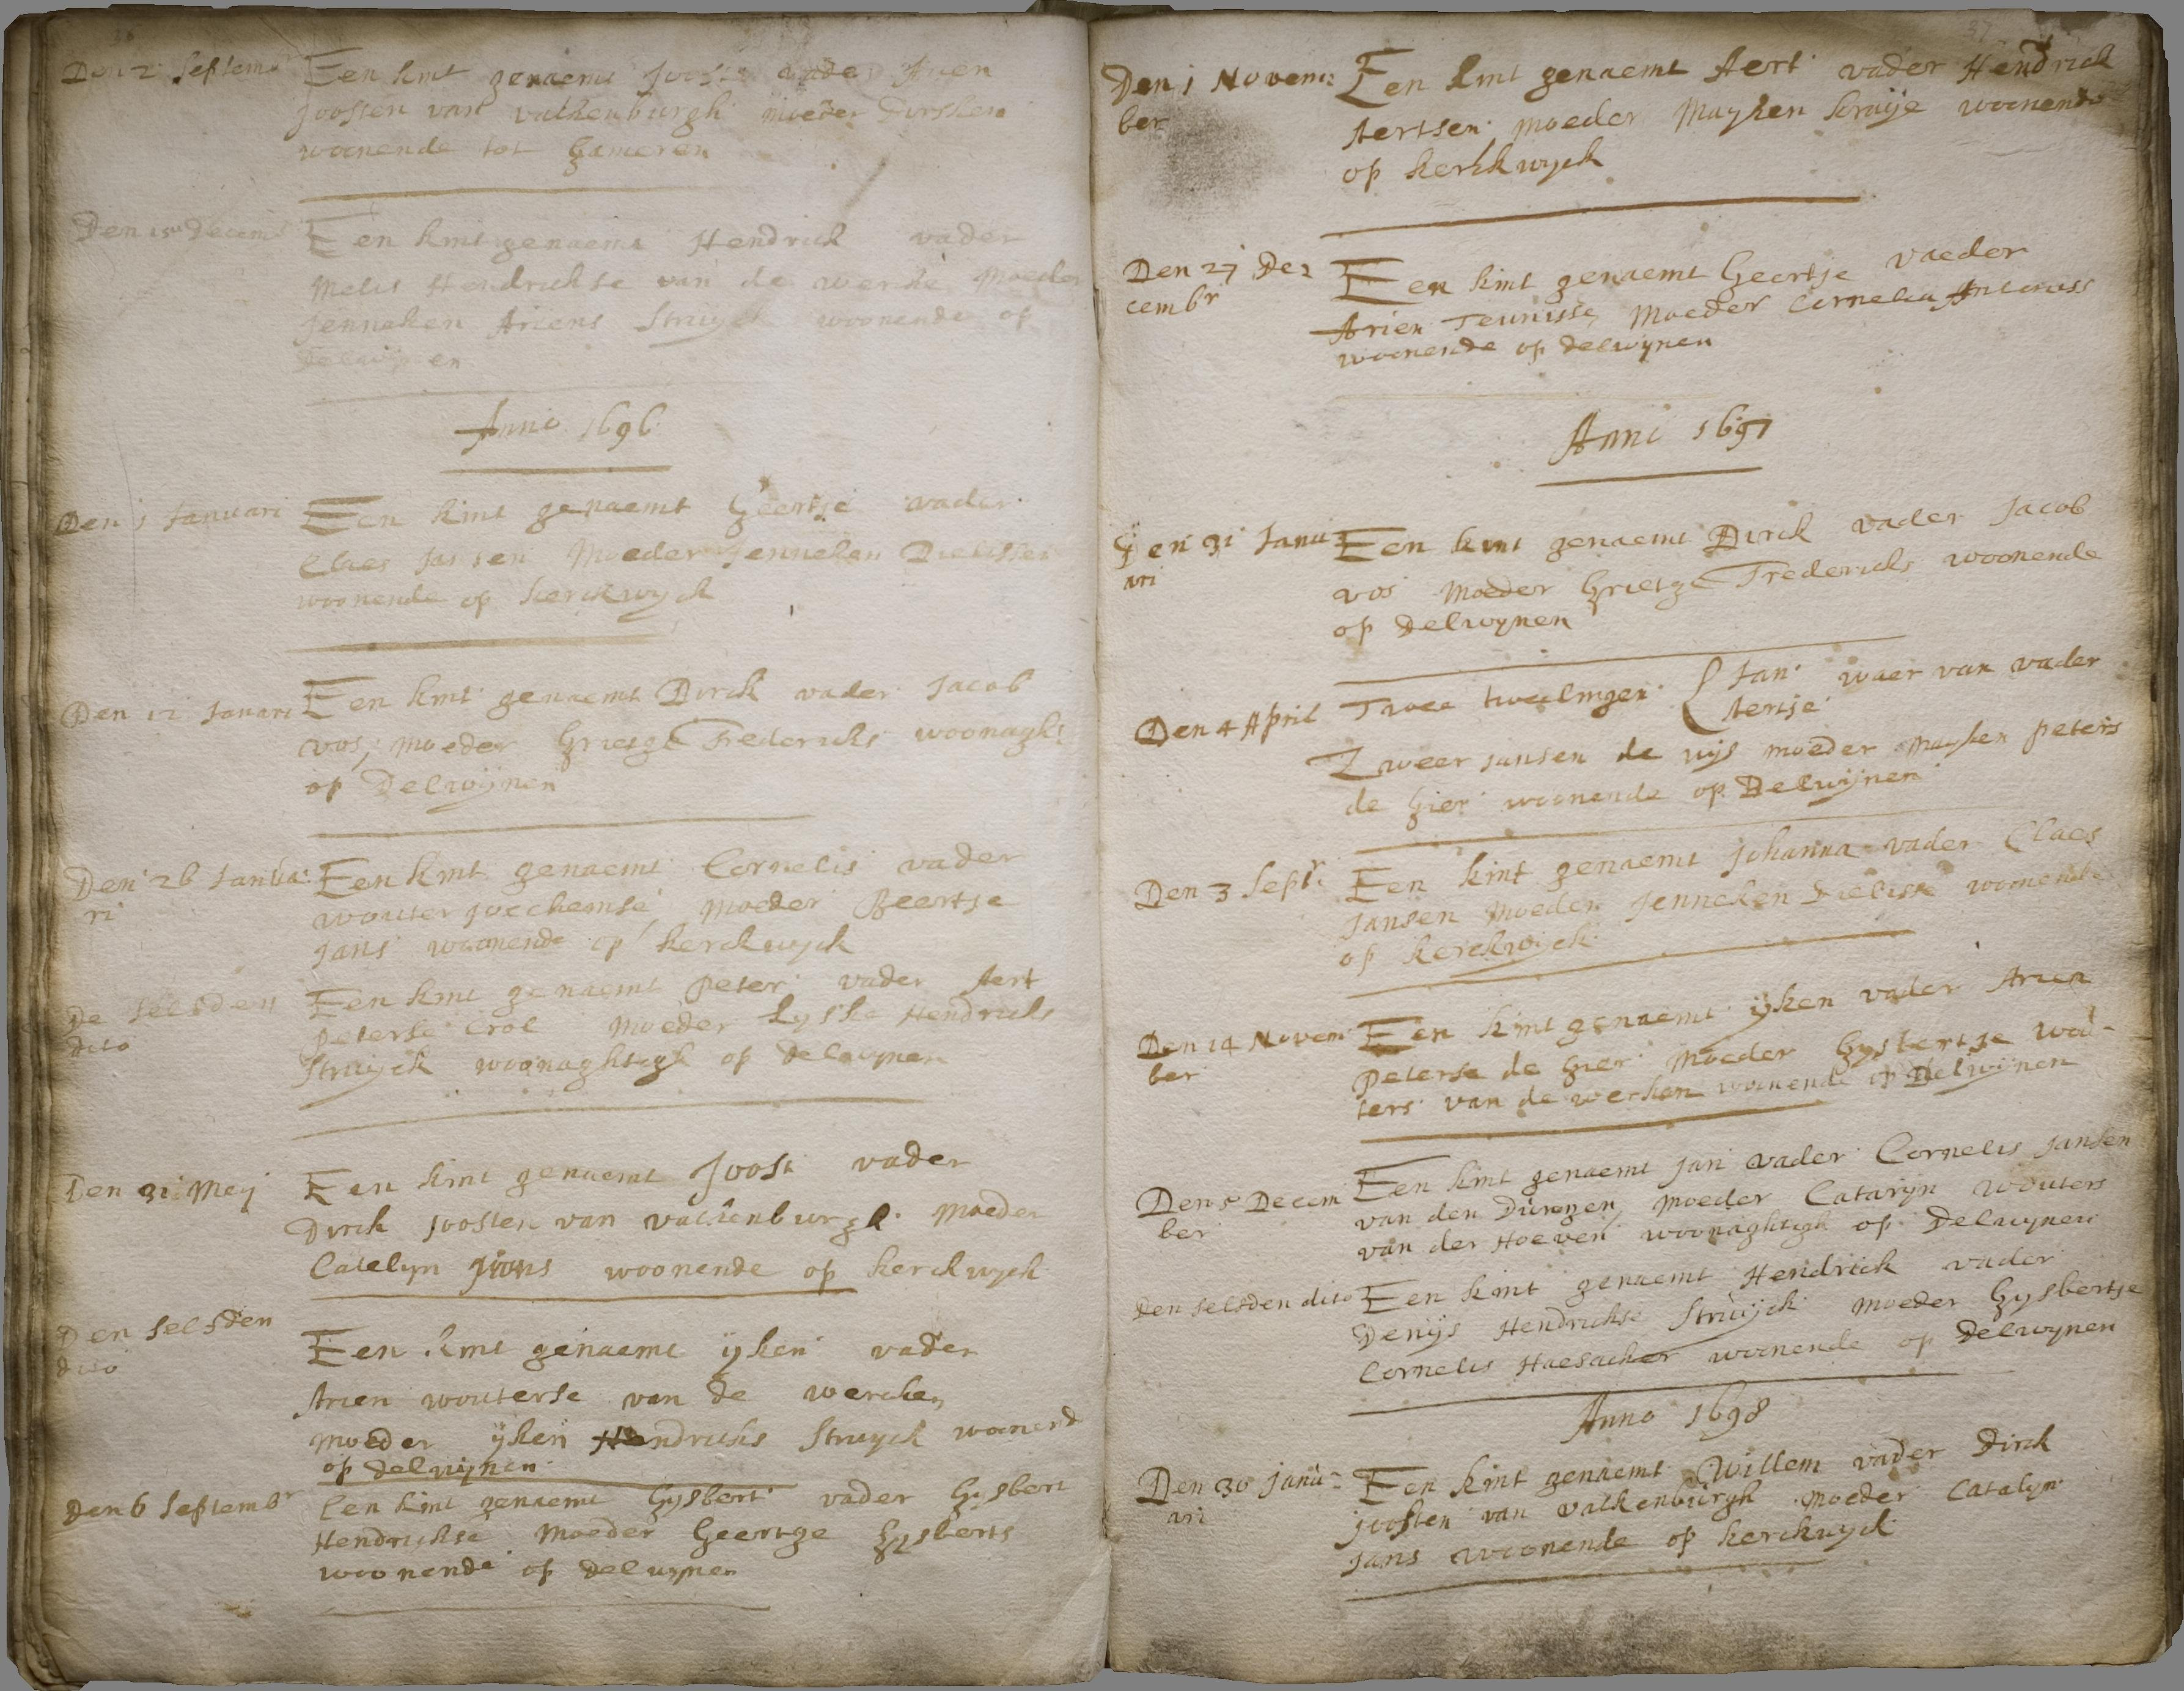 36
Den 2 Septemr
Een kint genaemt Joost vader Arien
Joossen van valkenburgh moeder Dirsken
woonende tot Gameren
Den 15 Decemb
Een kint genaemt Hendrick vader
Melis Hendrickse van de werke Moeder
Jenneken Ariens Struyck woonende op
Delwijnen
Anno 1696
Den 1 Januari
Een kint genaemt Geertje vader
Claes Jansen Moeder Jenneken Dielissen
woonende op kerckwyck
Den 12 Januari
Een kint genaemt Dirck vader Jacob
vos, moeder Grietge Fredericks woonagh:
op Delwijnen
Den 26 Janua:
ri
Een kint genaemt Cornelis vader
wouter Joechemse moeder Beertje
Jans woonende op kerckwyck
De selsden
dito
Een kint genaemt Peter vader Aert
peterse Crol Moeder Lyske Hendricks
Struyck woonaghtigh op delwynen
Den 31 Meij
Een kint genaemt Joost vader
Dirck Joosten van valkenburgh Moeder
Catelyn Jans woonende op kerckwyck
Den selsden
dito
Een kint genaemt ijken vader
Arien wouterse van de wercken
moeder ijken Hendricks Struyck woonend
op delwijnen
Den 6 Septembr
Een kint genaemt Gysbert vader Gysbert
Hendrickse Moeder Geertge Gysberts
woonende op delwynen
37
Den 1 Novem:
ber
Een kint genaemt Aert vader Hendrick
Aertsen moeder Mayken kraije woonende
op kerkkwyck
Den 27 De:
cembr
Een kint genaemt Geertje vaeder
Arien Teunisse, Moeder Cornelia Antoniss
woonende op delwynen
Anno 1697
Den 31 Janu:
ari
Een kint genaemt Dirck vader Jacob
vos Moeder Grietge Fredericks woonende
op Delwynen
Den 4 April
Twee tweelingen { Jan waer van vader
Aertje
Zweer jansen de vijs moeder mayken peters
de Gier woonende op Delwijnen
Den 3 Septr.
Een kint genaemt Johanna vader Claes
Jansen Moeder Jenneken Dielisse woonende
op kerckwijck
Den 14 Novem
ber
Een kint genaemt ijken vader Arien
Peterse de Gier Moeder Gysbertje wou-
ters van de werken woonende op Delwijnen
Den 5 Decem
ber
Een kint genaemt Jan vader Cornelis Jansen
van den Dungen, Moeder Catarijn wouters
van der Hoeven woonaghtigh op Delwynen
Den selsden dito
Een kint genaemt Hendrick vader
Denijs Hendrickse Struijck moeder Gysbertje
Cornelis Haesacker woonende op Delwynen
Anno 1698
Den 30 Janu:
ari
Een kint genaemt Willem vader Dirck
Joosten van valkenburgh Moeder Catalyn
Jans woonende op kerckwyck